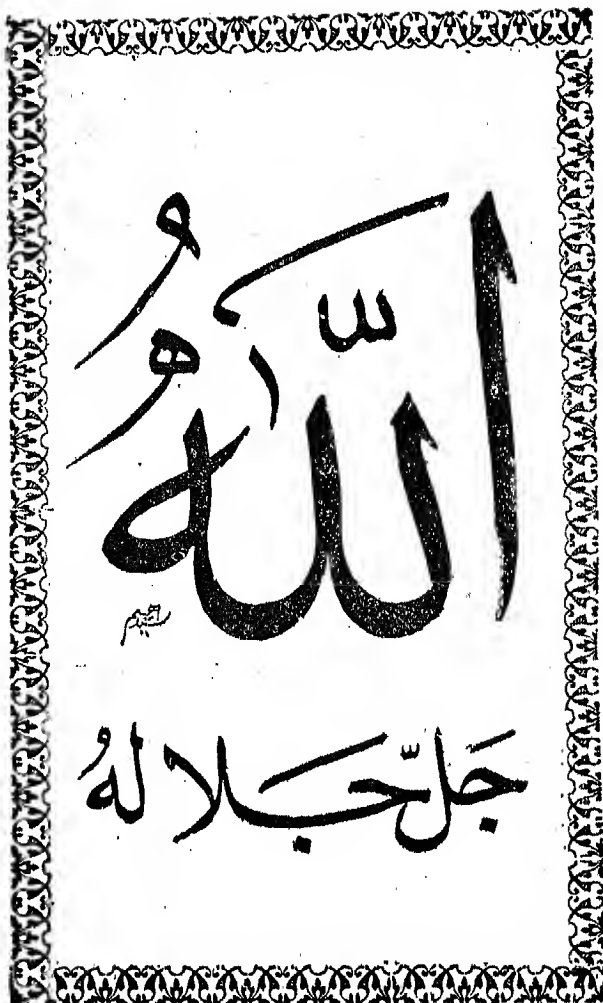 اللّٰهُ
جَلَّ جَلَالهُ